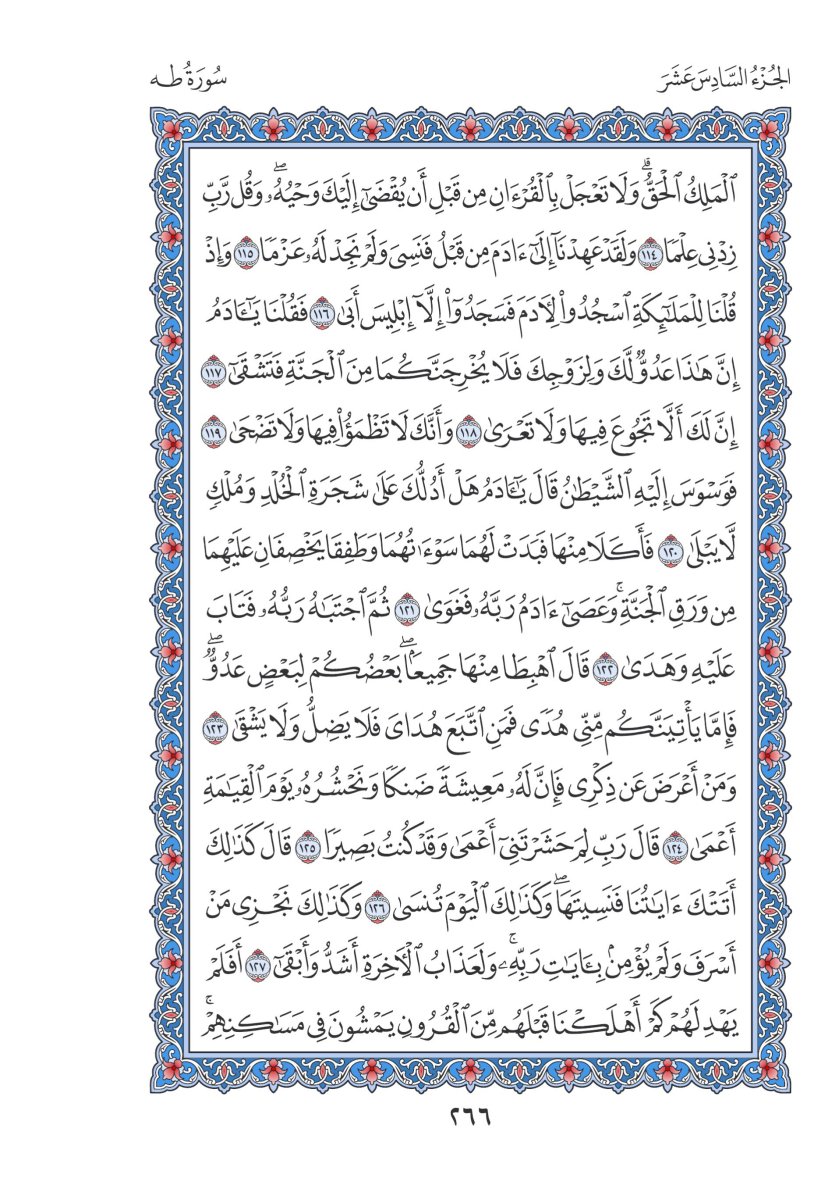 الجُزْءُ السَّادِسَ عَشَرَ
سُورَةُ طه
ٱلْمَلِكُ ٱلْحَقُّۗ وَلَا تَعْجَلْ بِٱلْقُرْءَانِ مِن قَبْلِ أَن يُقْضَىٰٓ إِلَيْكَ وَحْيُهُۥۖ وَقُل رَّبِّ
زِدْنِى عِلْمًا ١١٤ وَلَقَدْ عَهِدْنَآ إِلَىٰٓ ءَادَمَ مِن قَبْلُ فَنَسِىَ وَلَمْ نَجِدْ لَهُۥ عَزْمًا ١١٥ وَإِذْ
قُلْنَا لِلْمَلَٰٓئِكَةِ ٱسْجُدُوا۟ لِءَادَمَ فَسَجَدُوٓا۟ إِلَّآ إِبْلِيسَ أَبَىٰ ١١٦ فَقُلْنَا يَٰٓـَٔادَمُ
إِنَّ هَٰذَا عَدُوٌّ لَّكَ وَلِزَوْجِكَ فَلَا يُخْرِجَنَّكُمَا مِنَ ٱلْجَنَّةِ فَتَشْقَىٰٓ ١١٧
إِنَّ لَكَ أَلَّا تَجُوعَ فِيهَا وَلَا تَعْرَىٰ ١١٨ وَأَنَّكَ لَا تَظْمَؤُا۟ فِيهَا وَلَا تَضْحَىٰ ١١٩
فَوَسْوَسَ إِلَيْهِ ٱلشَّيْطَٰنُ قَالَ يَٰٓـَٔادَمُ هَلْ أَدُلُّكَ عَلَىٰ شَجَرَةِ ٱلْخُلْدِ وَمُلْكٍ
لَّا يَبْلَىٰ ١٢٠ فَأَكَلَا مِنْهَا فَبَدَتْ لَهُمَا سَوْءَٰتُهُمَا وَطَفِقَا يَخْصِفَانِ عَلَيْهِمَا
مِن وَرَقِ ٱلْجَنَّةِۚ وَعَصَىٰٓ ءَادَمُ رَبَّهُۥ فَغَوَىٰ ١٢١ ثُمَّ ٱجْتَبَٰهُ رَبُّهُۥ فَتَابَ
عَلَيْهِ وَهَدَىٰ ١٢٢ قَالَ ٱهْبِطَا مِنْهَا جَمِيعًۢاۖ بَعْضُكُمْ لِبَعْضٍ عَدُوٌّۖ
فَإِمَّا يَأْتِيَنَّكُم مِّنِّى هُدًى فَمَنِ ٱتَّبَعَ هُدَاىَ فَلَا يَضِلُّ وَلَا يَشْقَىٰ ١٢٣
وَمَنْ أَعْرَضَ عَن ذِكْرِى فَإِنَّ لَهُۥ مَعِيشَةً ضَنكًا وَنَحْشُرُهُۥ يَوْمَ ٱلْقِيَٰمَةِ
أَعْمَىٰ ١٢٤ قَالَ رَبِّ لِمَ حَشَرْتَنِىٓ أَعْمَىٰ وَقَدْ كُنتُ بَصِيرًا ١٢٥ قَالَ كَذَٰلِكَ
أَتَتْكَ ءَايَٰتُنَا فَنَسِيتَهَاۖ وَكَذَٰلِكَ ٱلْيَوْمَ تُنسَىٰ ١٢٦ وَكَذَٰلِكَ نَجْزِى مَنْ
أَسْرَفَ وَلَمْ يُؤْمِنۢ بِـَٔايَٰتِ رَبِّهِۦۚ وَلَعَذَابُ ٱلْءَاخِرَةِ أَشَدُّ وَأَبْقَىٰٓ ١٢٧ أَفَلَمْ
يَهْدِ لَهُمْ كَمْ أَهْلَكْنَا قَبْلَهُم مِّنَ ٱلْقُرُونِ يَمْشُونَ فِى مَسَٰكِنِهِمْۚ
٢٦٦